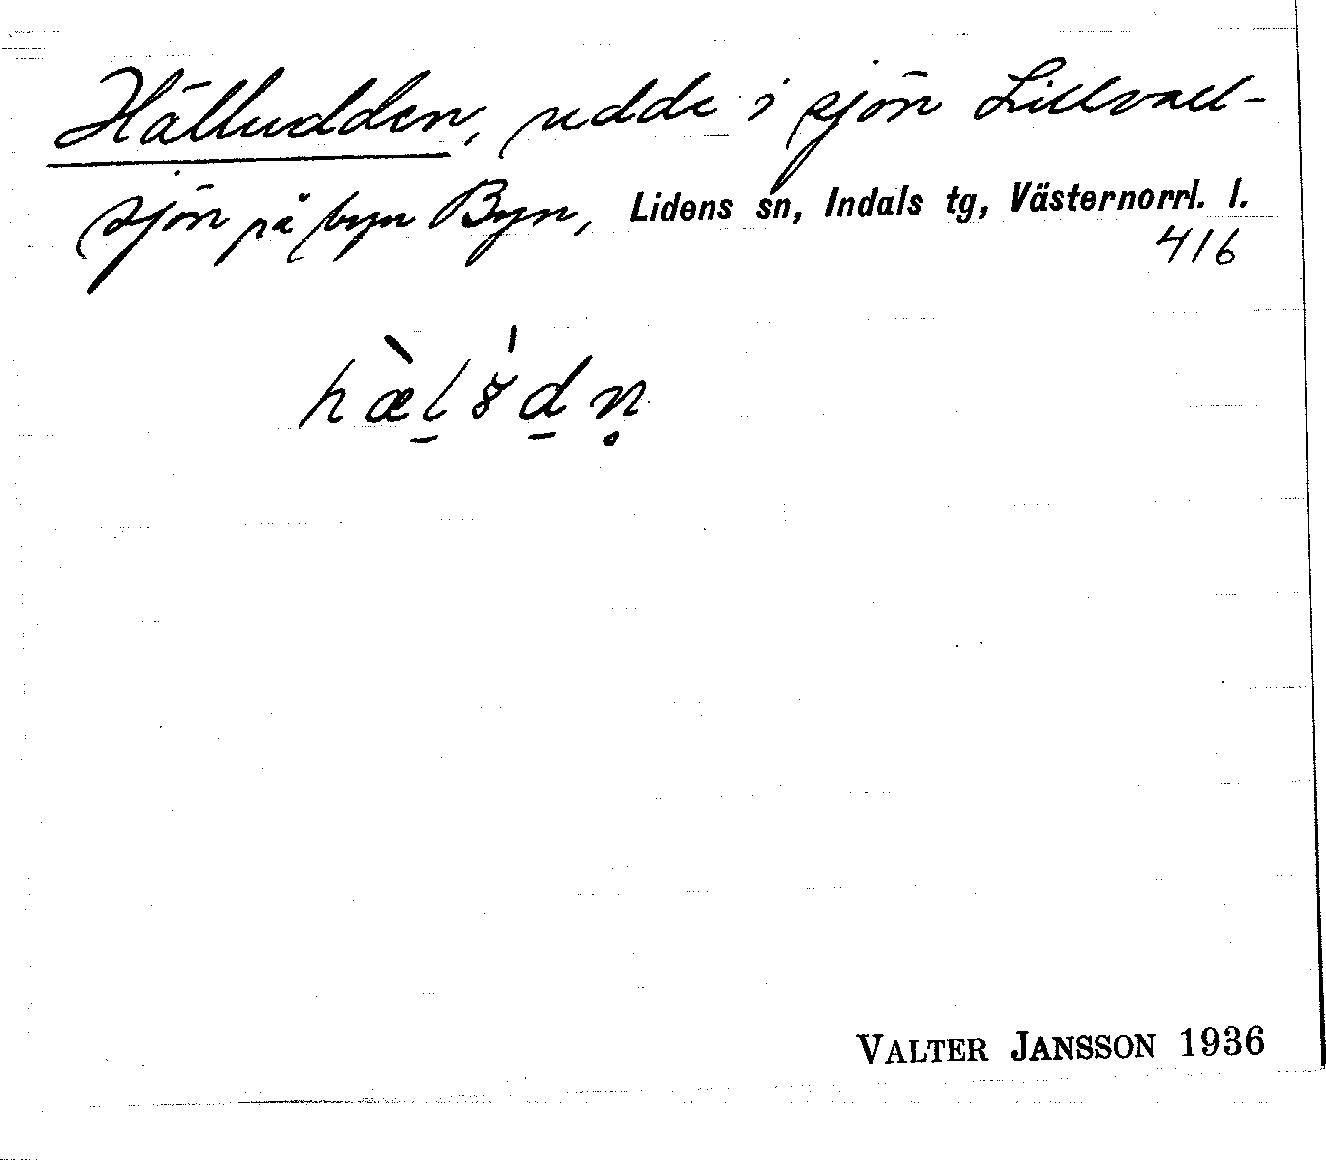 Hälludden, udde i sjön Lillvall-
sjön på byn Byn, Lidens sn, Indals tg, Västernorrl. l.
416
VALTER JANSSON 1936